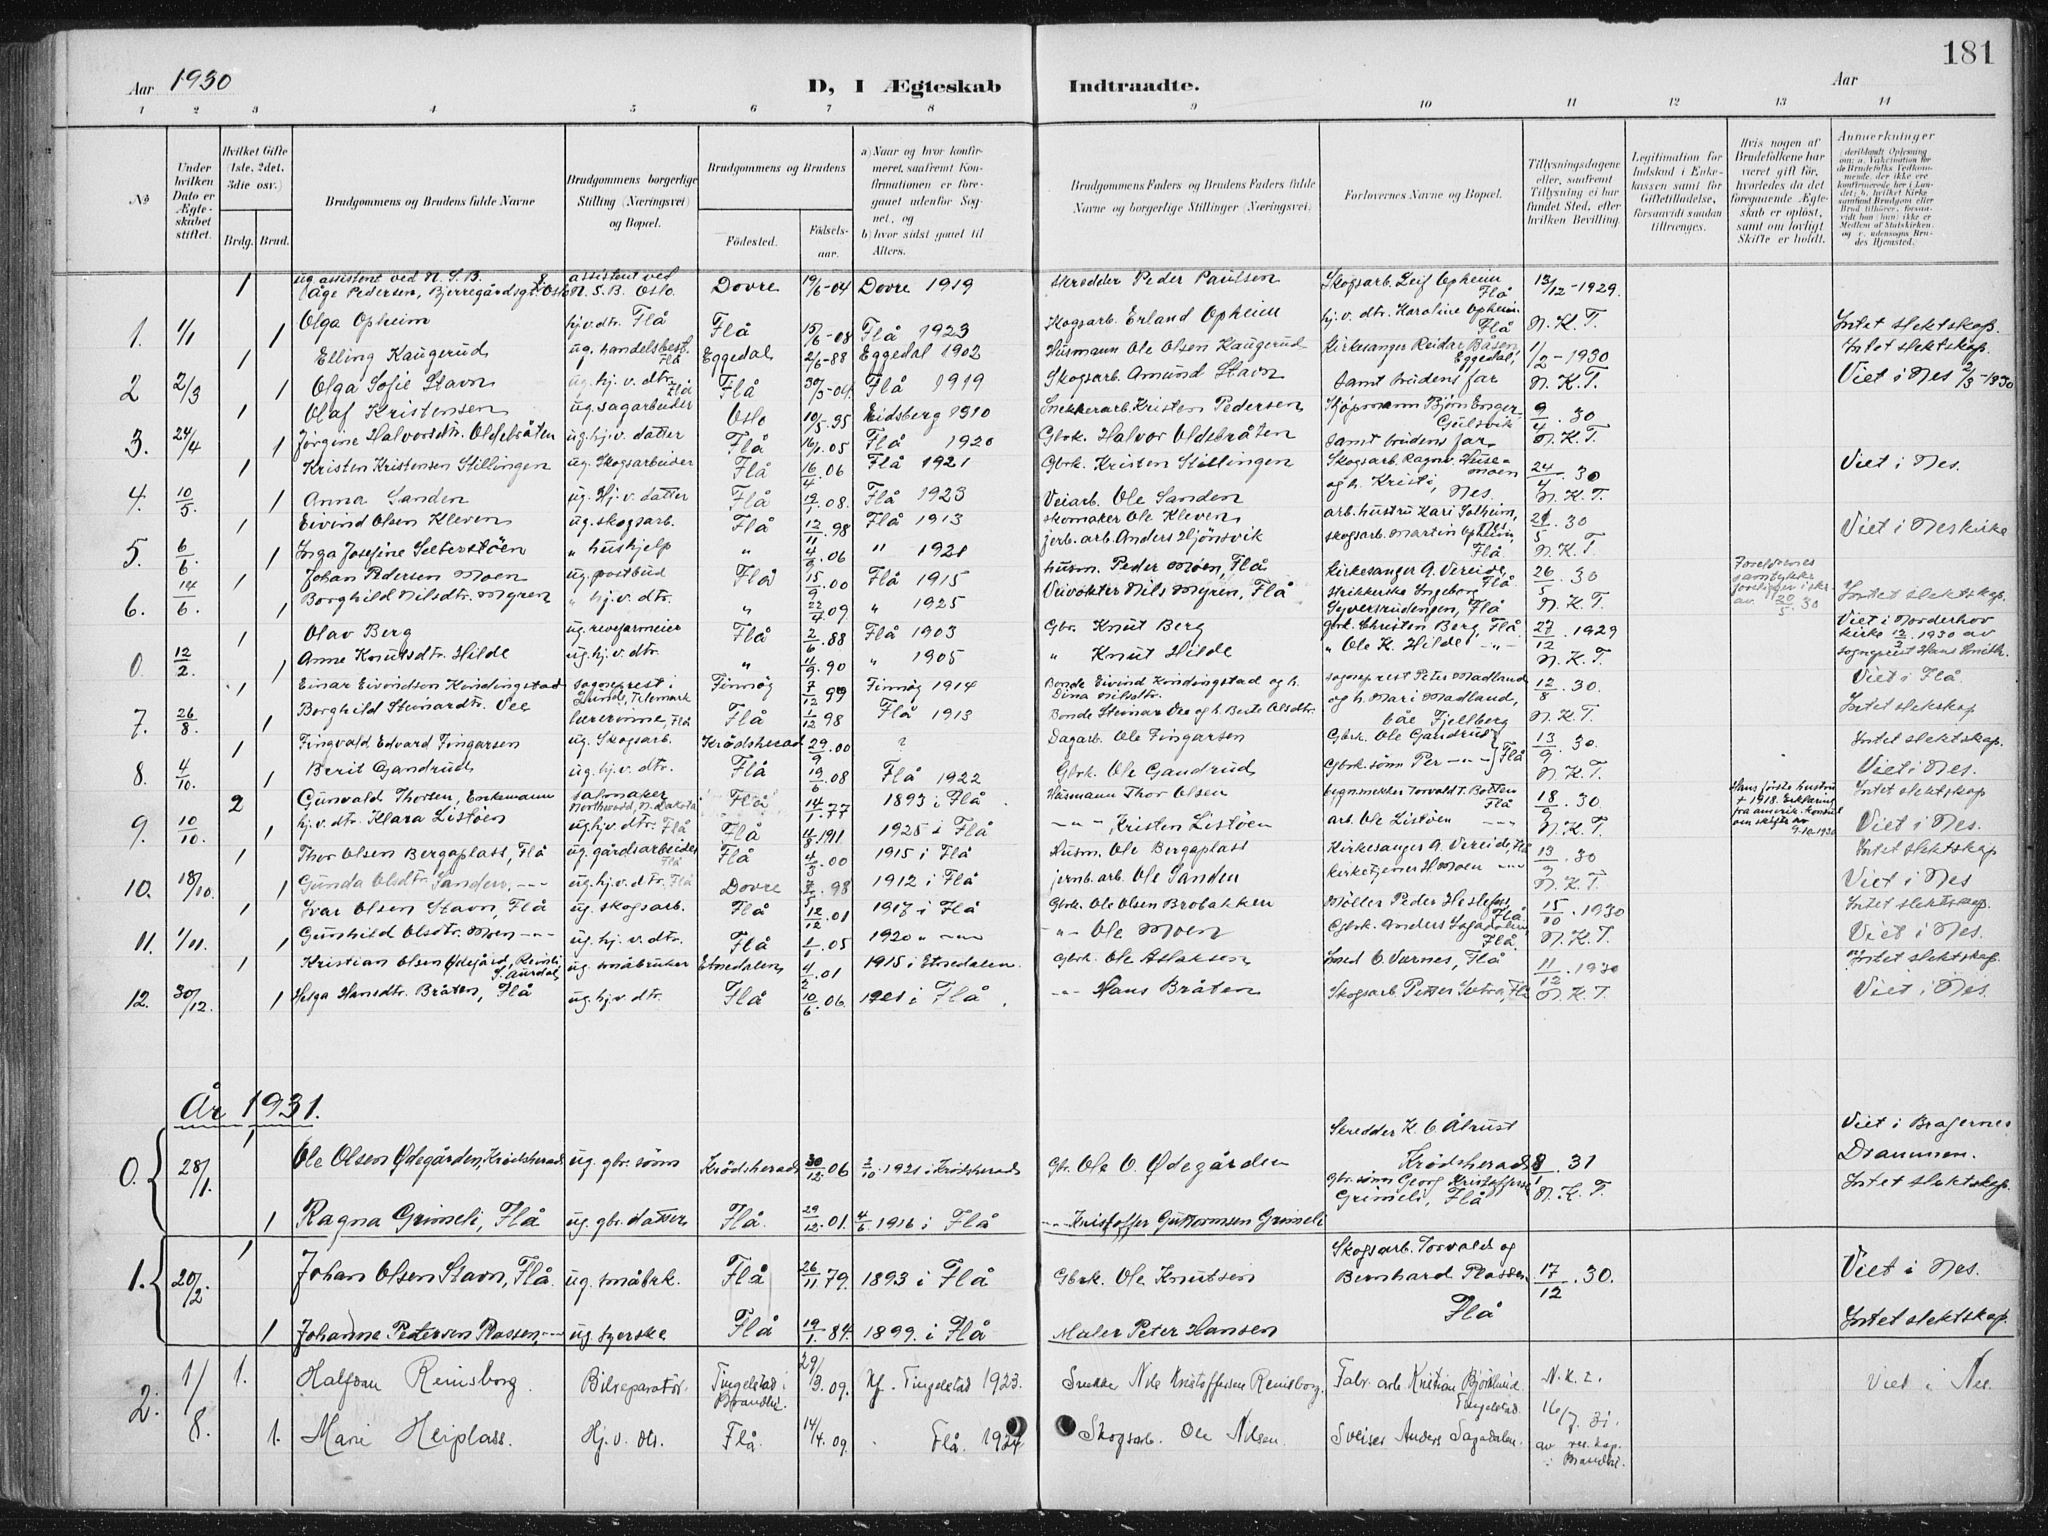 181
Aar 1930
D, I Ægteskab Indtraadte.
Aar
1 2 3 4 5 6 7 8 9 10 11 12 13 14
No
Under hvilken Dato er Ægteskabet stiftet.
Hvilket Gifte (1ste, 2det, 3die osv.)
Brdg. Brud.
Brudgommens og Brudens fulde Navne
Brudgommens borgerlige Stilling (Næringsvei) og Bopæl.
Brudgommens og Brudens
Fødested. Fødselsaar.
a) Naar og hvor konfirmeret, saafremt Konfirmationen er foregaaet udenfor Sognet, og
b) hvor sidst gaaet til Alters.
Brudgommens Faders og Brudens Faders fulde Navne og borgerlige Stillinger (Næringsvei)
Forlovernes Navne og Bopæl.
Tillysningsdagene eller, saafremt Tillysning ei har fundet Sted, efter hvilken Bevilling.
Legitimation for Indskud i Enkekassen samt for Giftetilladelse, forsaavidt saadan tiltrænges.
Hvis nogen af Brudefolkene har været gift før, hvorledes da det foregaaende Ægteskab er opløst, samt om lovligt Skifte er holdt.
Anmerkninger
1 ug. assistent ved N.S.B. Åge Pedersen, Bjerregårdsgt. Oslo assistent ved N.S.B. Oslo. Dovre 19/6-04 Dovre 1919 Skredder Peder Paulsen Skogsarb. Leif Opheim Flå 13/12-1929.
1. 1/1 1 Olga Opheim hj.v.dtr. Flå Flå 15/6-08 Flå 1923 Skogsarb. Erland Opheim hj.v. dtr. Karoline Opheim Flå N.K.T. Intet slektskap.
1 Elling Kaugerud ug. handelsbest. Flå Eggedal 2/6-88 Eggedal 1902 Husmann Ole Olsen Kaugerud Kirkesanger Reidar Båsen Eggedal, 1/2-1930 Intet slektskap.
2 2/3 1 Olga Sofie Stavn ug. hj.v. dtr. Flå Flå 30/3-04. Flå 1919 Skogsarb. Amund Stavn samt brudens far N.K.T. Viet i Nes 2/3-1930
1 Olaf Kristensen ug. sagarbeider Oslo 10/5-95 Eidsberg 1910 Snekkerarb. Kristen Pedersen Kjøpmann Bjørn Enger Gulsvik 9/4 30
3. 24/4 1 Jørgine Halvorsdtr. Oldebråten ug. hj.v. datter Flå 16/1.05 Flå 1920 Gbrk. Halvor Oldebråten samt brudens far N.K.T.
1 Kristen Kristensen Stillingen ug. Skogsarbeider Flå 16/4.06 Flå 1921 Gbrk. Kristen Stillingen Skogsarb. Ragnv. Husemoen 24/4.30 Viet i Nes.
4. 10/5. 1 Anna Sanden ug. Hj.v. datter Flå 19/1.08. Flå 1923 Veiarb. Ole Sanden og h. Kristi, Nes. N.K.T.
1 Eivind Olsen Kleven ug. skogsarb. Flå 12/11.98 Flå 1913 skomaker Ole Kleven arb. hustru Kari Solheim, Nes 21/5.30 Viet i Nes kirke
5. 6/6. 1 Inga Josefine Seterstøen " hushjelp " 4/9.06 " 1921 jerb.arb. Anders Hjønsvik skogsarb. Martin Opheim, Flå N.K.T.
1 Johan Pedersen Moen ug. postbud Flå 15/9.00 Flå 1915 husm. Peder Moen, Flå Kirkesanger G. Vereide, Flå 26/5.30 Foreldrenes samtykke foreligger i skr. av 20/5.30
6. 14/6. 1 Borghild Nilsdtr. Myren " hj.v. dtr. " 22/4.09 " 1925 Veivokter Nils Myren, Flå strikkerske Ingeborg Syversrudengen, Flå N.K.T. Intet slektskap.
1 Olav Berg ug. revefarmeier Flå 2/6.88 Flå 1903 Gbr. Knut Berg gbrk. Christen Berg, Flå 27/12.1929 Viet i Norderhov kirke 12/2.1930 av sogneprest Hans Smith.
0. 12/2. 1 Anne Knutsdtr. Hilde ug. hj.v. dtr. " 11/9.90 " 1905 " Knut Hilde " Ole K. Hilde N.K.T.
1 Einar Eivindsen Kindingstad sogneprest i Lunde, Telemark Finnøy 7/12.99 Finnøy 1914 Bonde Eivind Kindingstad og h. Dina Nilsdtr. sogneprest Peter Madland 12/8.30. Viet i Flå.
7. 26/8. 1 Borghild Steinardtr. Vee lærerinne, Flå Flå 1/12 98 Flå 1913 Bonde Steinar Vee og h. Berte Olsdtr. og h. Mari Madland, båe Fjellberg N.K.T. Intet slektskap
1 Fingvald Edvard Fingarsen ug. Skogsarb. Krødsherad 29/9.00 ? Dagarb. Ole Fingarsen Gbrk. Ole Gandrud 13/9.30. Intet slektskap.
8. 4/10. 1 Berit Gandrud ug. hj.v. dtr. Flå 19/6.08 Flå 1922 Gbrk. Ole Gandrud Gbrk. sønn Per Flå N.K.T. Viet i Nes.
2 Gunvald Thorsen, Enkemann salmaker Northwood, N. Dakota Flå 14/1.77 1893 i Flå Husmann Thor Olsen bygnsnekker Torvald T. Botten Flå 18/9.30. Hans første hustru + 1918. Erklæring fra amerik. konsul om skifte av 9.10.1930 Intet slektskap
9. 10/10. 1 hj.v. dtr. Klara Listøen ug. hj.v. dtr. Flå Flå 4/8.1911 1925 i Flå Kristen Listøen arb. Ole Listøen N.K.T. Viet i Nes.
1 Thor Olsen Bergaplass, Flå ug. gårdsarbeider Flå Flå 4/3.00 1915 i Flå Husm. Ole Bergaplass Kirkesanger G. Vereide, Flå 13/9.30 Intet slektskap
10. 18/10. 1 Gunda Olsdtr. Sanden, ug. hj.v. dtr., Flå Dovre 7/5.98 1912 i Flå jernb.arb. Ole Sanden kirketjener H Moen N.K.T. Viet i Nes
1 Ivar Olsen Stavn, Flå ug. skogsarb. Flå 12/12.01 1917 i Flå Gbrk. Ole Olsen Brobakken Møller Peder Heslefoss, Flå 15/10.1930 Intet slektskap.
11. 1/11. 1 Gunhild Olsdtr. Moen ug. hj.v. dtr. Flå 1/1.05 1920 Ole Moen Gbrk. Anders Sagadalen Flå. N.K.T. Viet i Nes.
1 Kristian Olsen Ødegård, S. Aurdal ug. småbruker Etnedalen 4/2.01 1915 i Etnedalen. Gbrk. Ole Aslaksen Lmed. O. Varnes, Flå 11/12.1930 Intet slektskap.
12. 30/12. 1 Helga Hansdtr. Bråten, Flå ug. hj.v. dtr. Flå 10/6.06 1921 i Flå. Hans Bråten Skogsarb. Petter Sætra, Flå N.K.T. Viet i Nes.
År 1931.
0. 28/1. 1 Ole Olsen Ødegården, Krødsherad ug. gbr. sønn Krødsherad 30/12.06 2/10.1921 i Krødsherad Gbr. Ole O. Ødegården Skredder K. O. Ålrust Krødsherad 8/1.31 Viet i Bragernes Drammen.
1 Ragna Grimeli, Flå ug. gbr. datter Flå. 29/12.01. 4/6.1916 i Flå Kristoffer Guttormsen Grimeli Gbr. sønn Georg Kristoffersen Grimeli, Flå N.K.T. Intet slektskap.
1. 20/2. 1 Johan Olsen Stavn, Flå. ug. småbrk. Flå 26/11.79. 1893 i Flå Gbrk. Ole Knutsen Skogsarb. Torvald og Bernhard Plassen Flå 17/12.30. Viet i Nes.
1 Johanne Petersen Plassen, ug. syerske Flå 19/1.84. 1899. i Flå Maler Peter Hansen Intet slektskap.
2. 1/8. 1. Halfdan Reinsborg. Bilreparatør. Tingelstad i Brandbu. 29/3.09. Kf. Tingelstad 1923. Snekker Nils Kristoffersen Reinsborg. Fabr. arb Kristian Bjørklund Tingelstad. N.K.T. 16/7.31. Viet i Nes.
1. Marie Heiplass. Hj.v. dtr. Flå. 14/4.09. Flå. 1924 Skogsarb. Ole Nilsen. Sveiser Anders Sagadalen. av res.kap. i Brandbu.